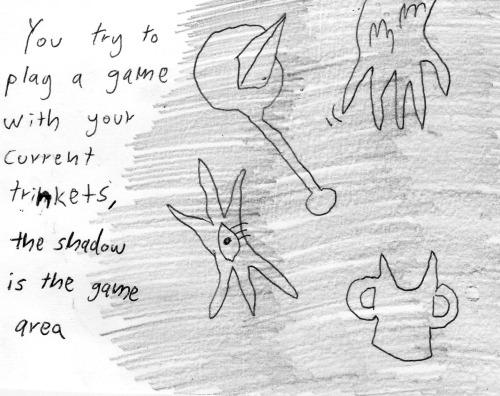 You try to
play a game
with your
current
trinkets,
the shadow
is the game
area